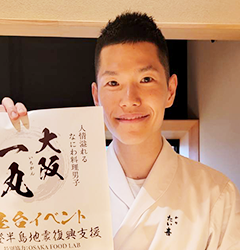 人情溢れる
なにわ料理男子
大阪
一丸
いちがん
屋台イベント
半島地震復興支援
OSAKA FOOD LAB.